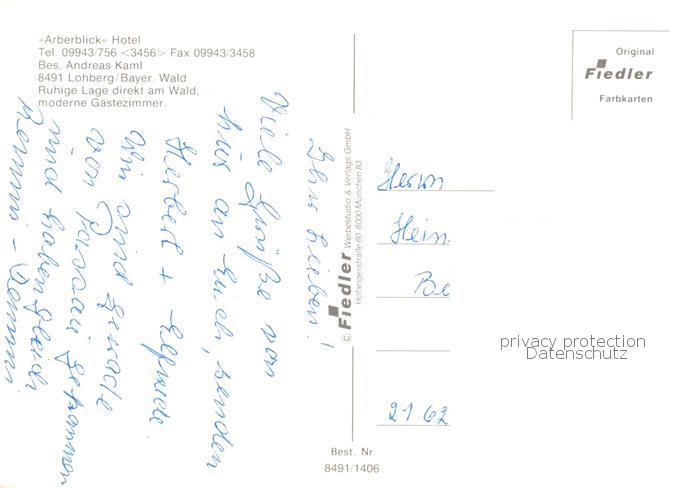 »Arberblick« Hotel
Tel. 09943/756 <3456> Fax 09943/3458
Bes. Andreas Kaml
8491 Lohberg/Bayer. Wald
Ruhige Lage direkt am Wald,
moderne Gästezimmer.
Ihr Lieben!
Viele Grüße von
hier an Euch, senden
Herbert + Elfriede
Wir sind gerade
von Passau gekommen
und haben gleich
© Fiedler Werbestudio & Verlags GmbH
Hofangerstraße 60 8000 München 83
Original
Fiedler
Farbkarten
Herrn
Hein
Be
2162
privacy protection
Datenschutz
Best. Nr.
8491/1406